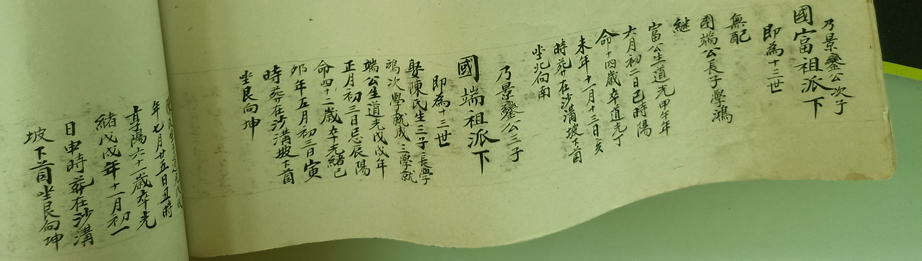 乃景鑾公次子
國富祖派下
即為十三世
無配
國端公長子學鴻
継
富公生道光甲午年
六月初二日己時陽
命十四歲卒道光丁
未年十二月十三日亥
時葬在沙溝坡下崮
坐北向南
乃景鑾公三子
國端祖派下
即為十三世
娶陳氏生三子長學
鴻次學成三學就
端公生道光戊戌年
正月初三日忌辰陽
命四十二歲卒光緒己
卯年五月初三日寅
時葬在沙溝坡下崮
坐艮向坤
年七月廿五日丑時
壽陽六十一歲卒光
緒戊戌年十二月初一
日申時葬在沙溝
坡下崮坐艮向坤